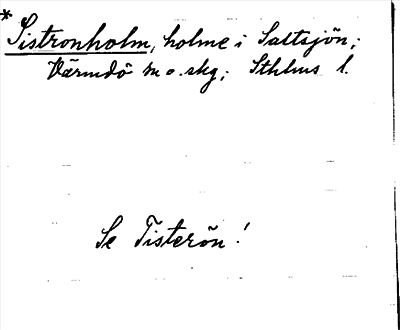 * Sistronholm, holme i Saltsjön;
Värmdö m o. skg; Sthlms l.
Se Tisterön!